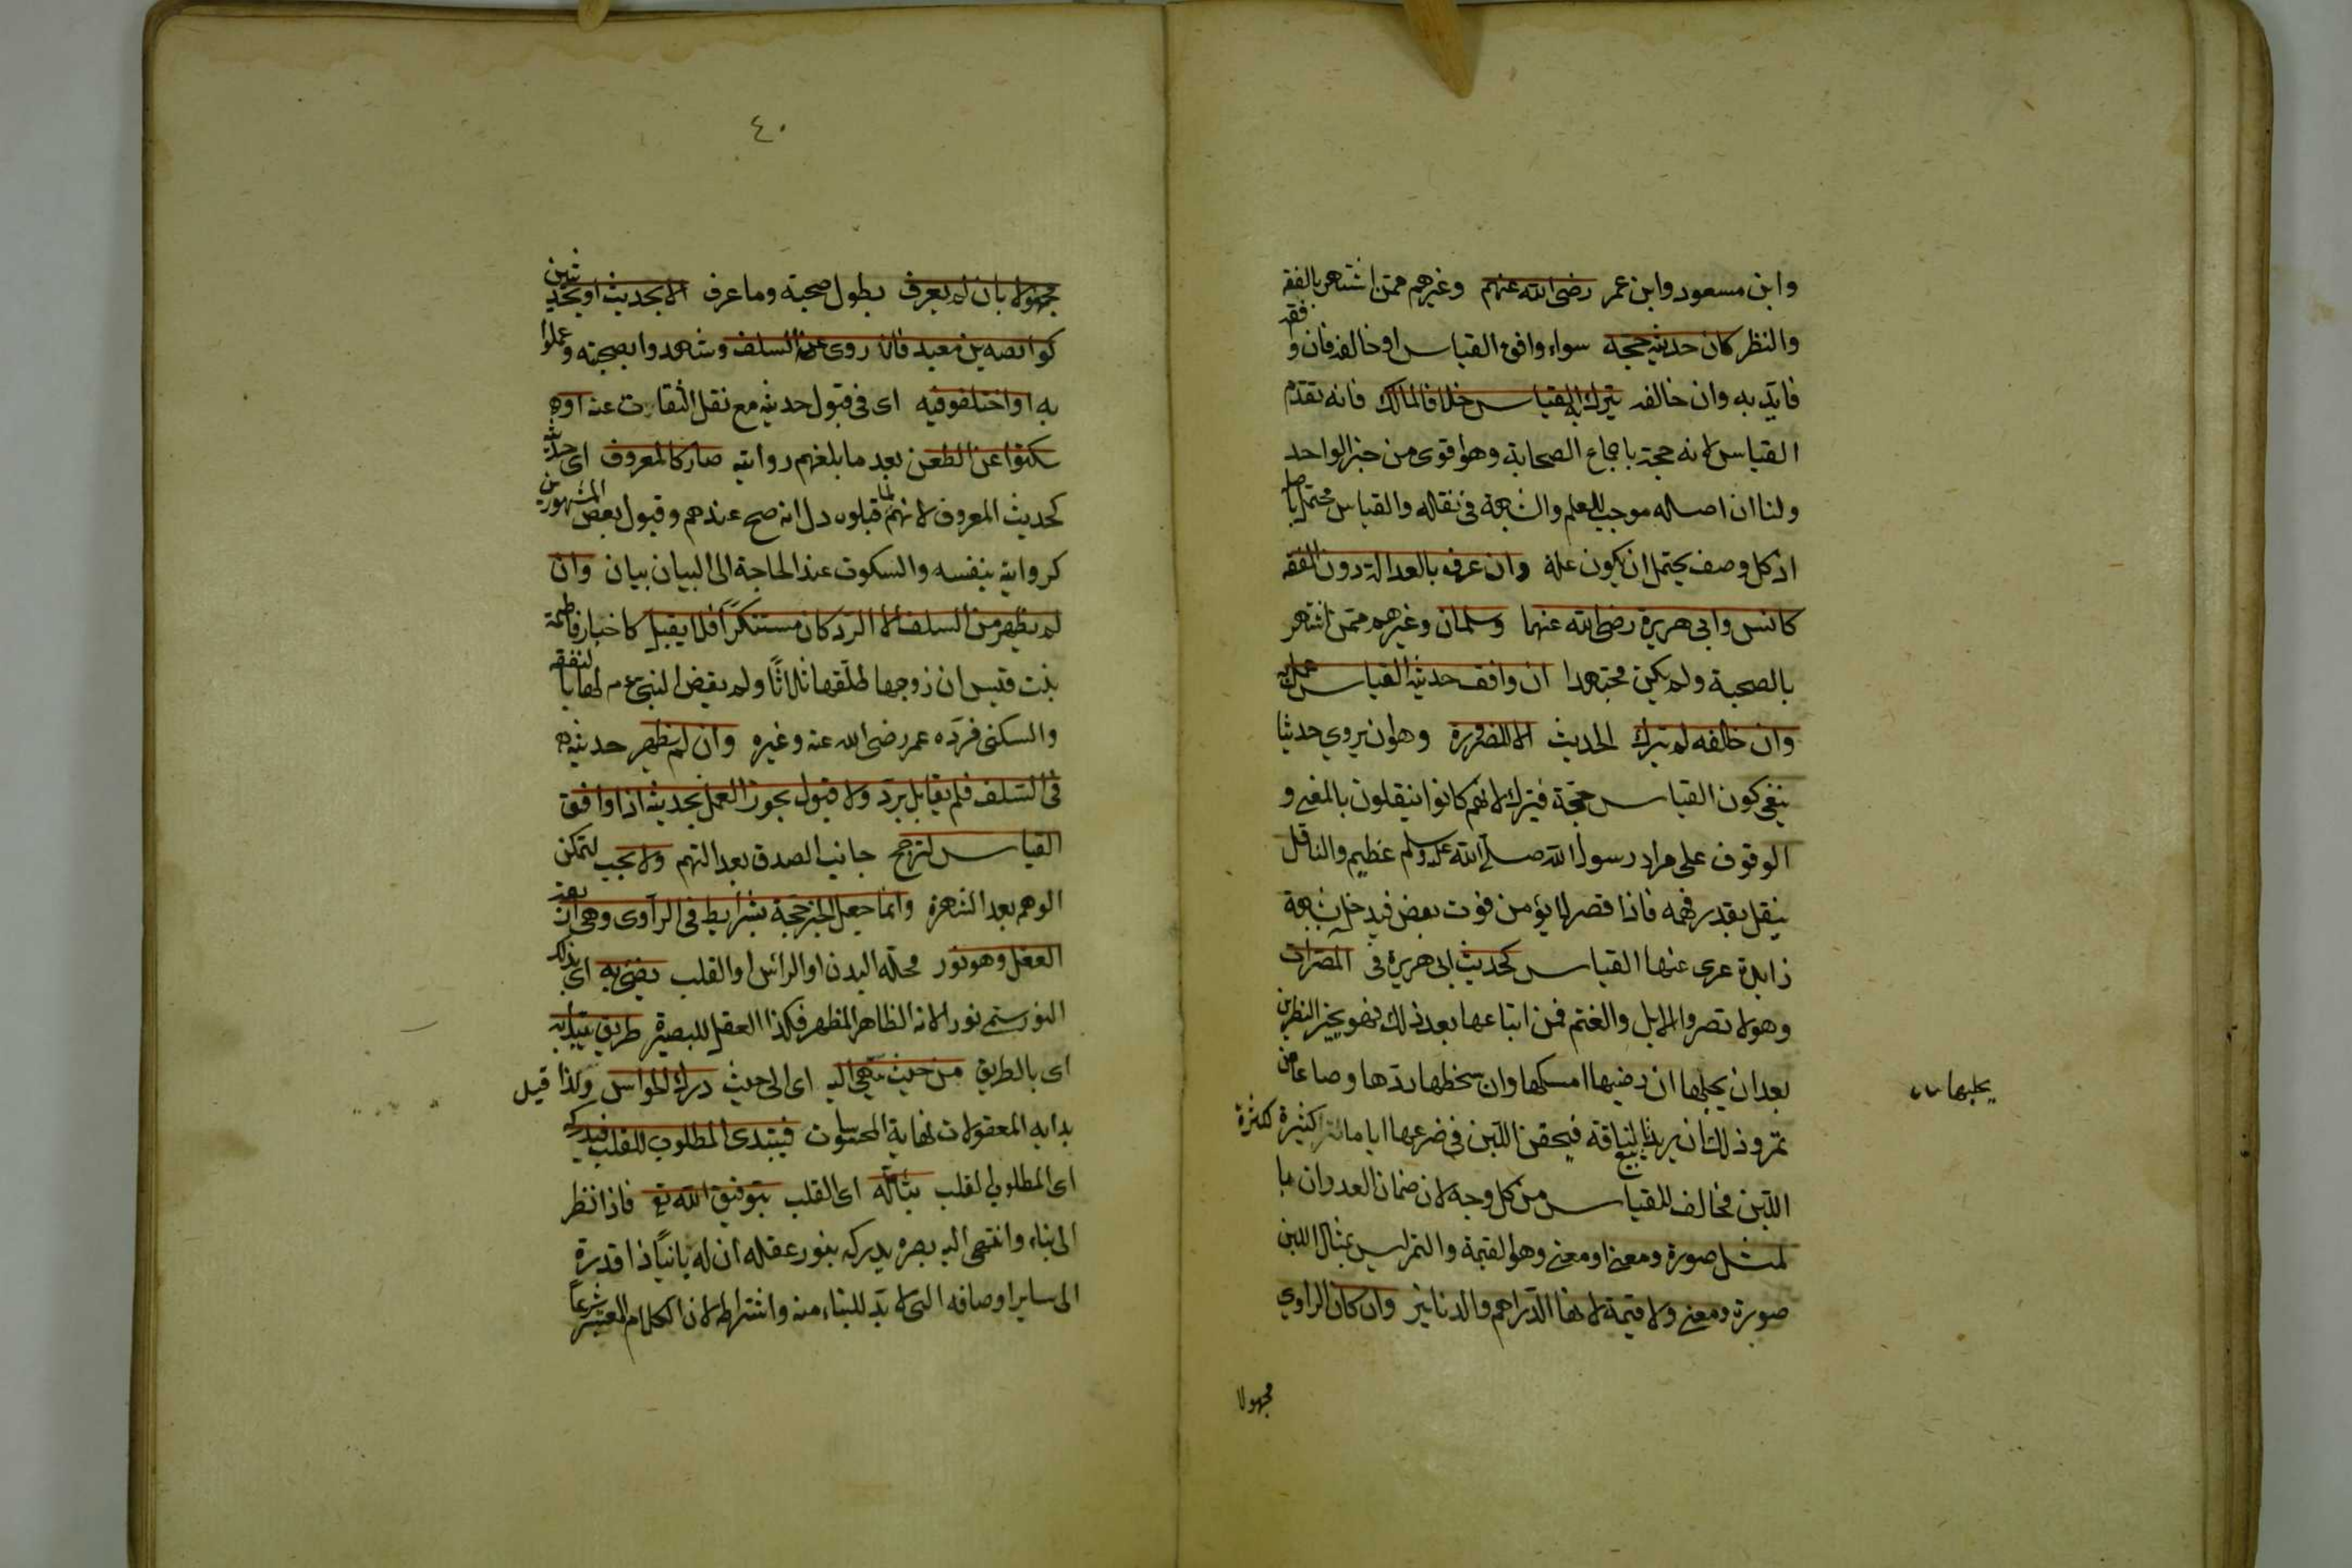 وابن مسعود وابن عمر رضى الله عنهم وغيرهم ممن اشتهر بالفقه
والنظر كان حديثه حجة سواء وافق القياس او خالفه فان وفقه
فايد به وان خالفه يترك به القياس خلافا لمالك فانه تقدم
القياس لانه حجة باجماع الصحابة وهو اقوى من خبر الواحد
ولنا ان اصله موجب للعلم والشبهة فى نقله والقياس محتمل باصله
اذ كل وصف يحتمل ان يكون علة وان عرف بالعدالة دون الفقه
كانس وابى هريرة رضى الله عنهما وسلمان وغيرهم ممن اشتهر
بالصحبة ولم يكن مجتهدا ان وافق حديثه القياس عمل به
وان خالفه لم يترك الحديث الا للضرورة وهو ان يروي حديثا
ينفى كون القياس حجة فيترك لانهم كانوا ينقلون بالمعنى و
الوقوف على مراد رسول الله صلى الله عليه وسلم عظيم والناقل
ينقل بقدر فهمه فاذا قصر لا يؤمن فوت بعض فيدخل شبهة
زايدة عرى عنها القياس كحديث ابى هريرة فى المصرات
وهو لا تصروا الابل والغنم فمن ابتاعها بعد ذلك فهو بخير النظرين
بعد ان يحلبها ان رضيها امسكها وان سخطها ردها وصاعا من
يحلبها
تمر وذلك ان يريد لبيع ناقة فيحقن اللبن فى ضرعها اياما لتر كثيرة
كثرة
اللبن مخالف للقياس من كل وجه لان ضمان العدوان با
لمثل صورة ومعنى او معنى وهو القيمة والتمر ليس بمثال اللبن
صورة ومعنى ولا قيمة لانها الدراهم والدنانير وان كان الراوي
مجهولا
٤٠
مجهولا بان لم يعرف بطول صحبة وما عرف الا بحديث او بحديثين
كوابصة بن معبد فان روى عنه السلف وشهدوا بصحته وعملوا
به او اختلفوا فيه اى فى قبول حديثه مع نقل الثقات عنه او
سكتوا عن الطعن بعد ما بلغهم روايته صار كالمعروف اى حديثه
كحديث المعروف لانهم لما قبلوه دل انه صح عندهم وقبول بعض المشهورين
كروايته بنفسه والسكوت عند الحاجة الى البيان بيان وان
لم يظهر من السلف الا الرد كان مستنكرًا فلا يقبل كاخبار فاطمة
بنت قيس ان زوجها طلقها ثلاثًا ولم يقض النبى عم لها بالنفقة
والسكنى فرده عمر رضى الله عنه وغيره وان لم يظهر حديثه
فى السلف فلم يقابل برد ولا قبول يجوز العمل بحديثه اذا وافق
القياس لترجح جانب الصدق بعد التهم ولا يجب لتمكن
الوهم بعد الشهرة وانما جعل الخبر حجة بشرايط فى الراوى وهى اربعة
العقل وهو نور محله البدن او الرأس او القلب يضئ به اى بذلك
النور سمى نورا لانه الظاهر المظهر فكذا العقل للبصيرة طريق يبتدأ به
اى بالطريق من حيث ينتهى اليه اى الى حيث درك الحواس وكذا قيل
بداية المعقولات نهاية المحسوسات فيبتدى المطلوب للقلب فيدركه
اى المطلوب القلب بتأمله اى القلب بتوفيق الله تع فاذا نظر
الى بناء وانتهى اليه بصره يدركه بنور عقله ان له بانيًا ذا قدرة
الى ساير اوصافه التى لا بد للبناء منه واشتراطه لان الكلام المعتبر شرعًا